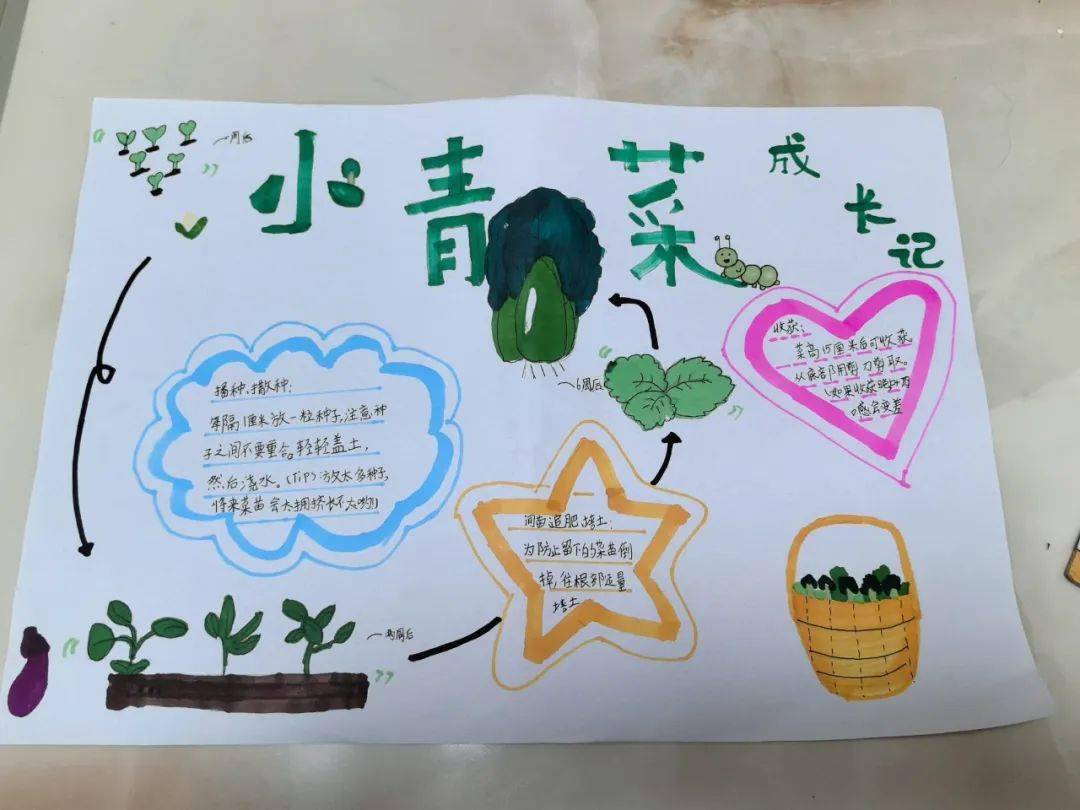 小青菜
成长记
一周后
播种、撒种:
每隔1厘米放一粒种子,注意种
子之间不要重合。轻轻盖土,
然后浇水。(Tip)放太多种子,
将来菜苗会太拥挤长不大哟!
两周后
间苗追肥培土:
为防止留下的菜苗倒
掉,往根部适量
培土
6周后
收获:
菜高15厘米后可收获。
从底部用剪刀剪取。
如果收获晚
口感会变差